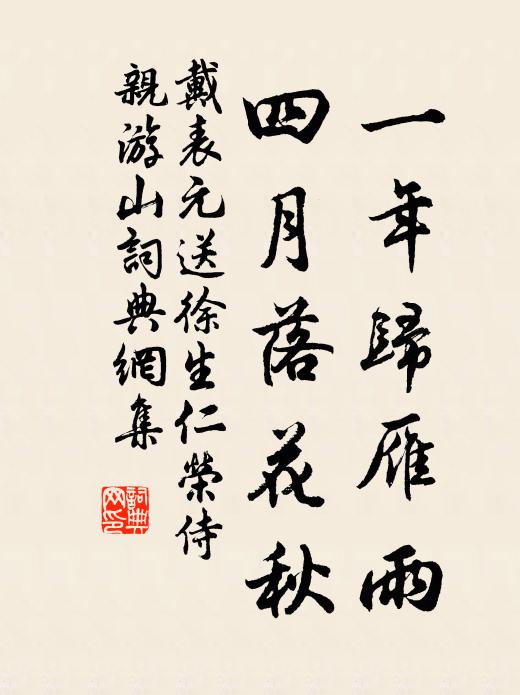 一年歸雁雨
四月落花秋
戴表元送徐生仁榮侍
親游山詞典網集
詞典
网印